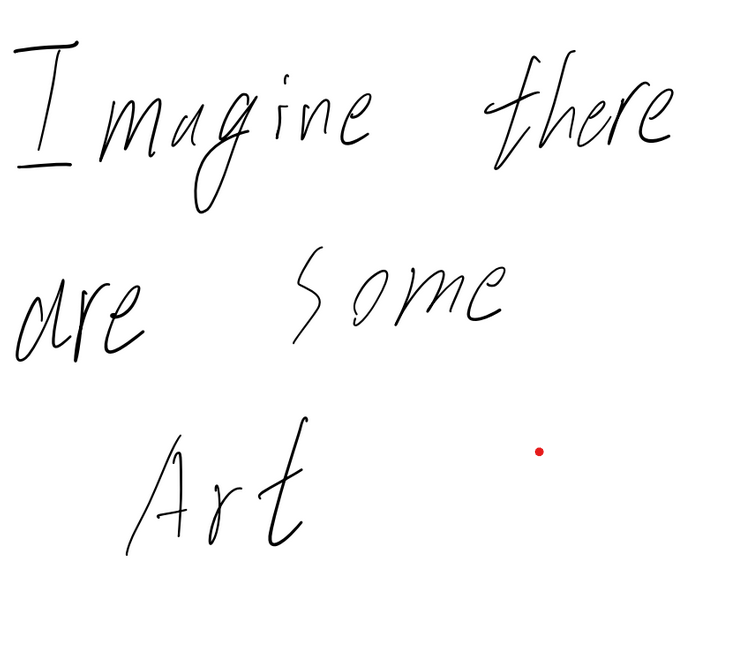 Imagine there
are some
Art